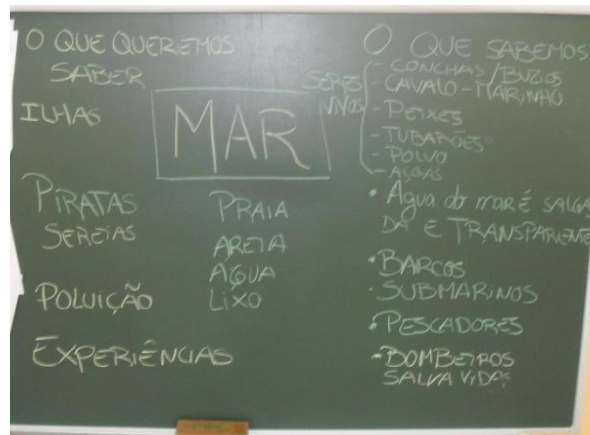 O QUE QUEREMOS
SABER
ILHAS
MAR
PIRATAS
SEREIAS
POLUIÇÃO
EXPERIÊNCIAS
PRAIA
AREIA
AGUA
LIXO
O QUE SABEMOS
SERES
VIVOS
- CONCHAS/BUZOS
- CAVALO-MARINHO
- PEIXES
- TUBARÕES
- POLVO
- ALGAS
• Agua do mar é SALGA
DA E TRANSPARENTE
• BARCOS
• SUBMARINOS
• PESCADORES
• BOMBEIROS
SALVA VIDAS